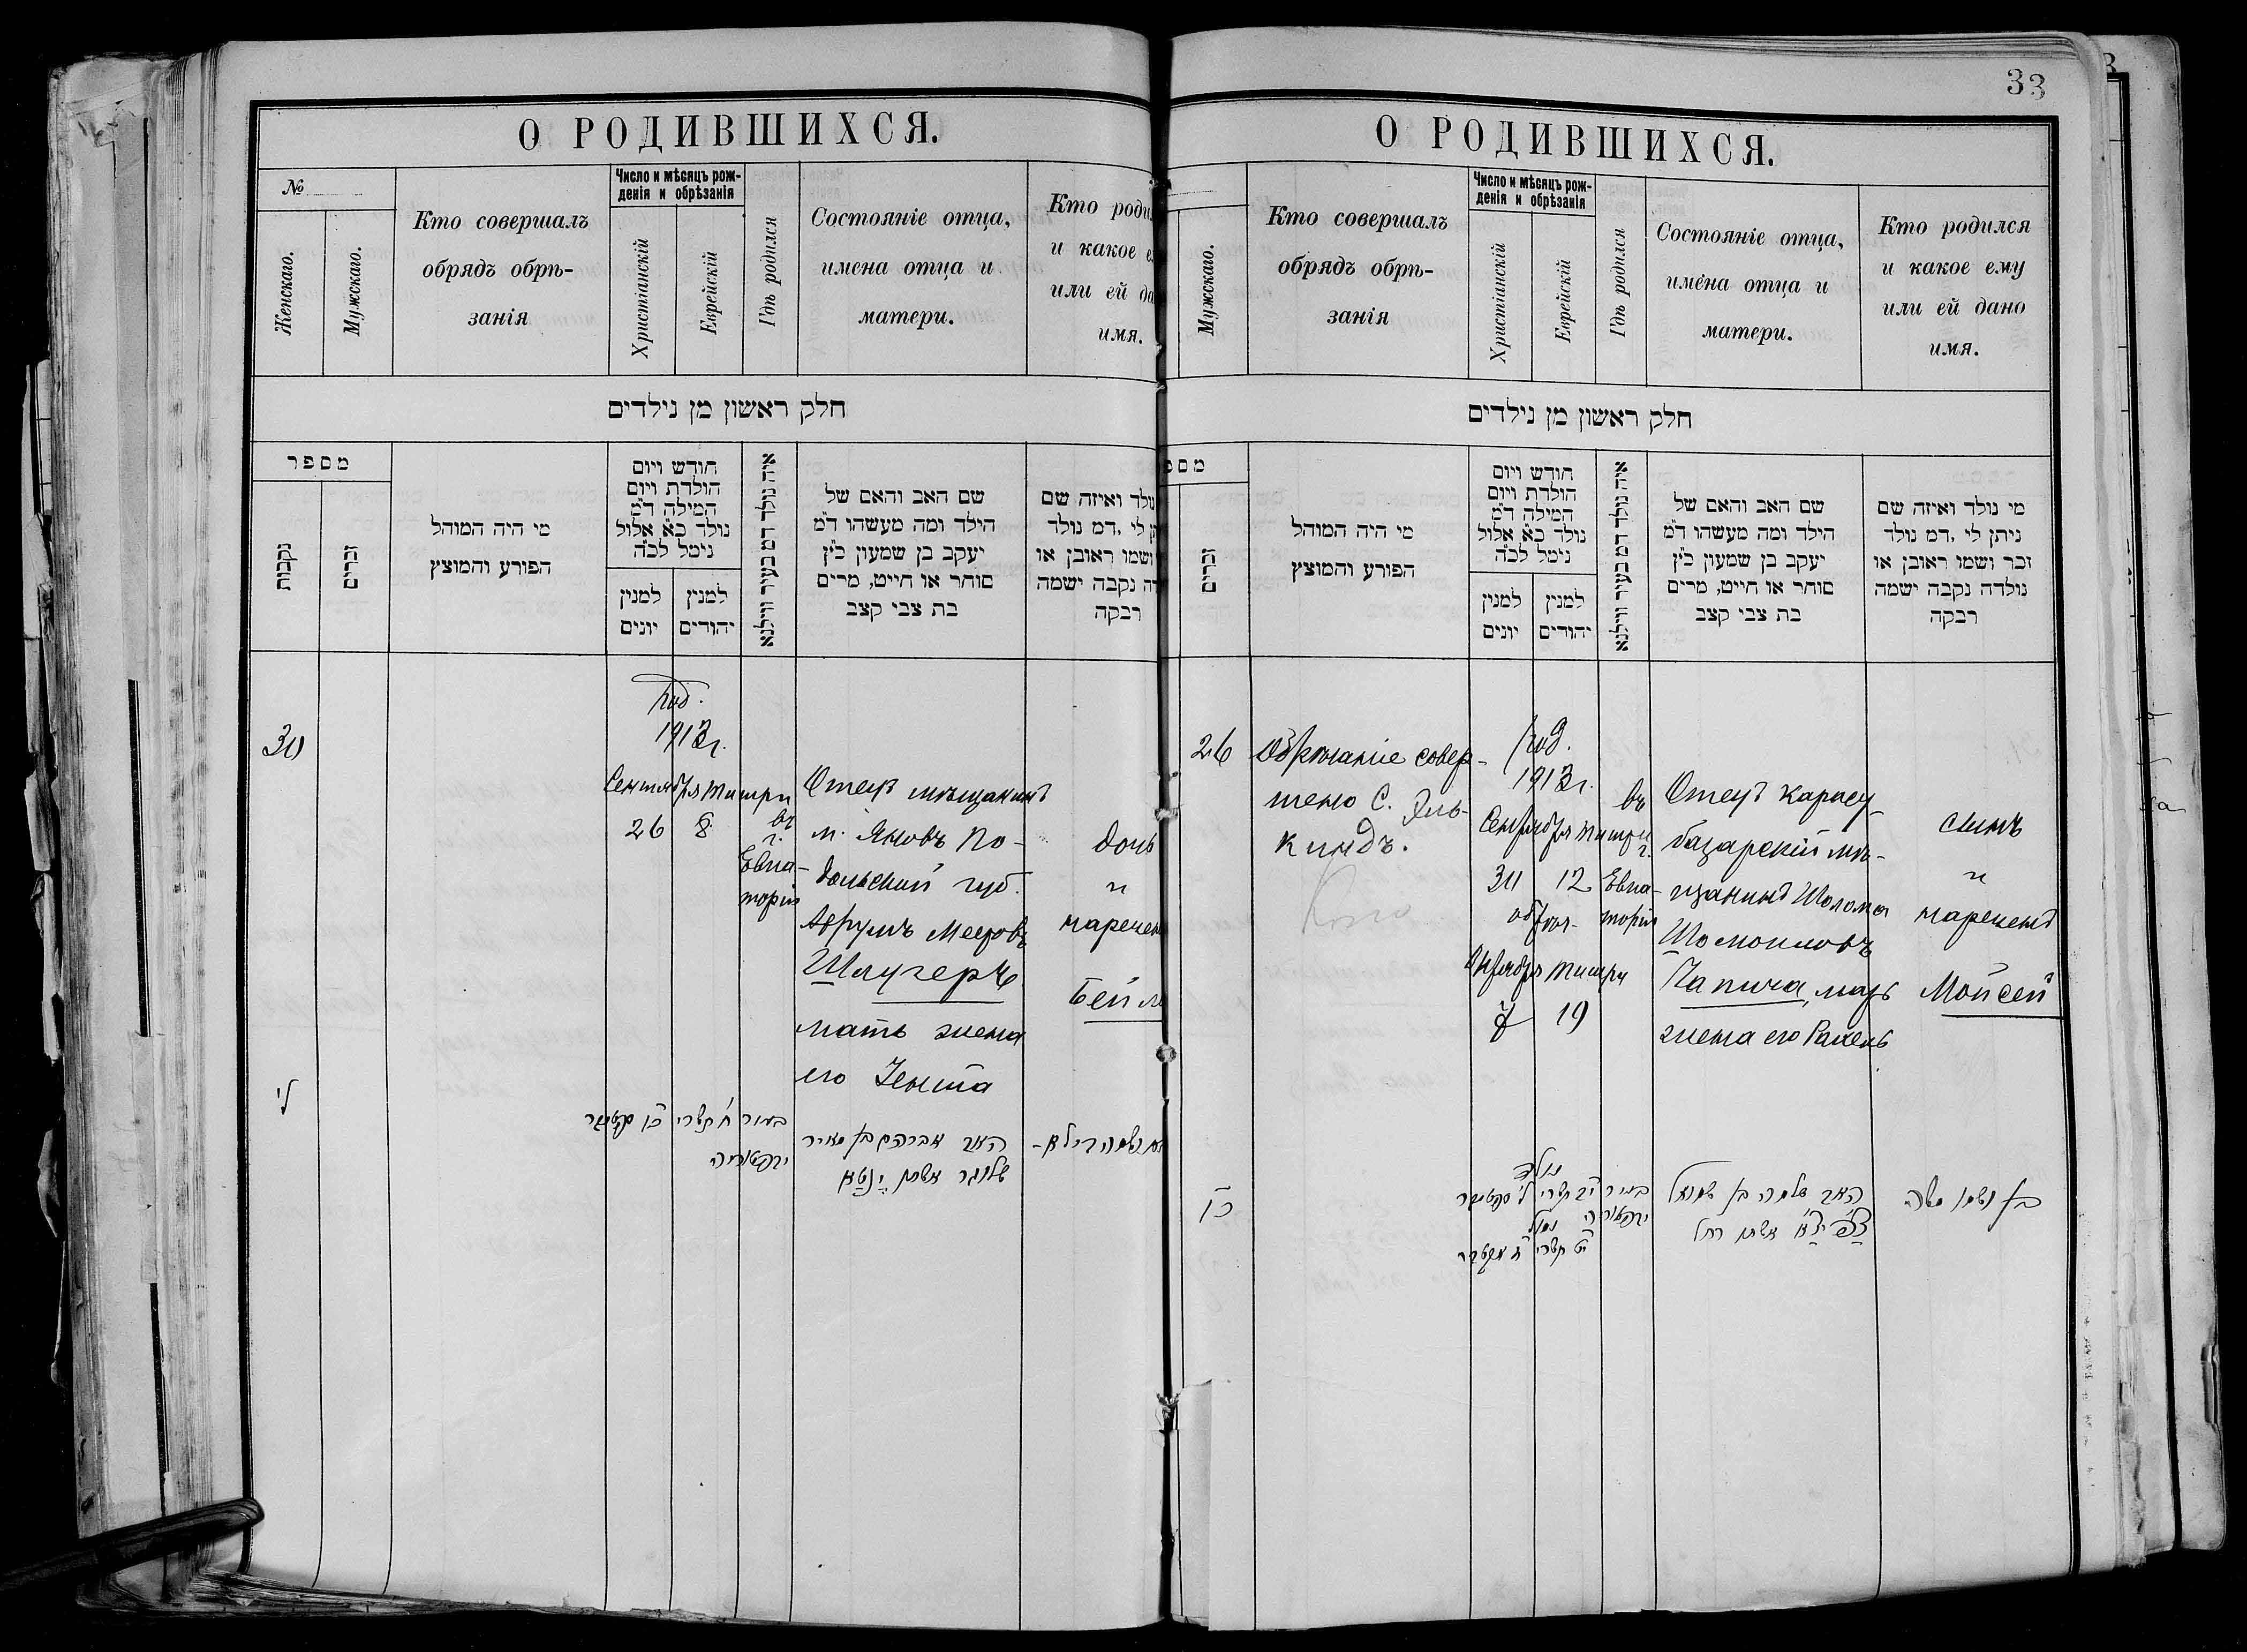 О РОДИВШИХСЯ.
№
Женскаго.
Мужскаго.
Кто совершалъ
обрядъ обрѣ-
занія
Число и мѣсяцъ рож-
денія и обрѣзанія
Христіанскій
Еврейскій
Гдѣ родился
Состояніе отца,
имена отца и
матери.
Кто роди
и какое е
или ей да
имя.
חלק ראשון מן נילדים
מספר
נקבות
זכרים
מי היה המוהל
הפורע והמוצץ
חודש ויום
הולדת ויום
המילה ד"מ
נולד כ"א אלול
נימל לכ"ה
למנין
יונים
למנין
יהודים
איה נולד דמ בעיר ווילנא
שם האב והאם של
הילד ומה מעשהו ד"מ
יעקב בן שמעון כ"ץ
סוחר או חייט, מרים
בת צבי קצב
נולד ואיזה שם
ן לי ,דמ נולד
ושמו ראובן או
דה נקבה ישמה
רבקה
30
род.
1913г.
Сентября Тишри
26 8
въ
г.
Евпа-
торіи
Отецъ мѣщанинъ
м. Яновъ По-
дольской губ.
Аврумъ Мееровъ
Шлугеръ
мать жена
его Чента
дочь
и
наречен
Бейл
לי
האב אברהם בן מאיר
שלוגר אשתו יֶנְטַא
33
О РОДИВШИХСЯ.
Мужскаго.
Кто совершалъ
обрядъ обрѣ-
занія
Число и мѣсяцъ рож-
денія и обрѣзанія
Христіанскій
Еврейскій
Гдѣ родился
Состояніе отца,
имена отца и
матери.
Кто родился
и какое ему
или ей дано
имя.
חלק ראשון מן נילדים
מספ
זכרים
מי היה המוהל
הפורע והמוצץ
חודש ויום
הולדת ויום
המילה ד"מ
נולד כ"א אלול
נימל לכ"ה
למנין
יונים
למנין
יהודים
איה נולד דמ בעיר ווילנא
שם האב והאם של
הילד ומה מעשהו ד"מ
יעקב בן שמעון כ"ץ
סוחר או חייט, מרים
בת צבי קצב
מי נולד ואיזה שם
ניתן לי ,דמ נולד
זכר ושמו ראובן או
נולדה נקבה ישמה
רבקה
26
Обрѣзаніе совер-
шено С. Эль-
киндъ.
род.
1913г.
Сентября Тишри
30 12
обрѣз.
Октября Тишри
7 19
въ
г.
Евпа-
торіи
Отецъ карасу-
базарскій мѣ-
щанинъ Шолома
Шомоиловъ
Чапича, мать
жена его Рахель
сынъ
и
нареченъ
Мойсей
כו
נולד
האב שלמה בן שמואל
אשתו רחל
בן ושמו משה